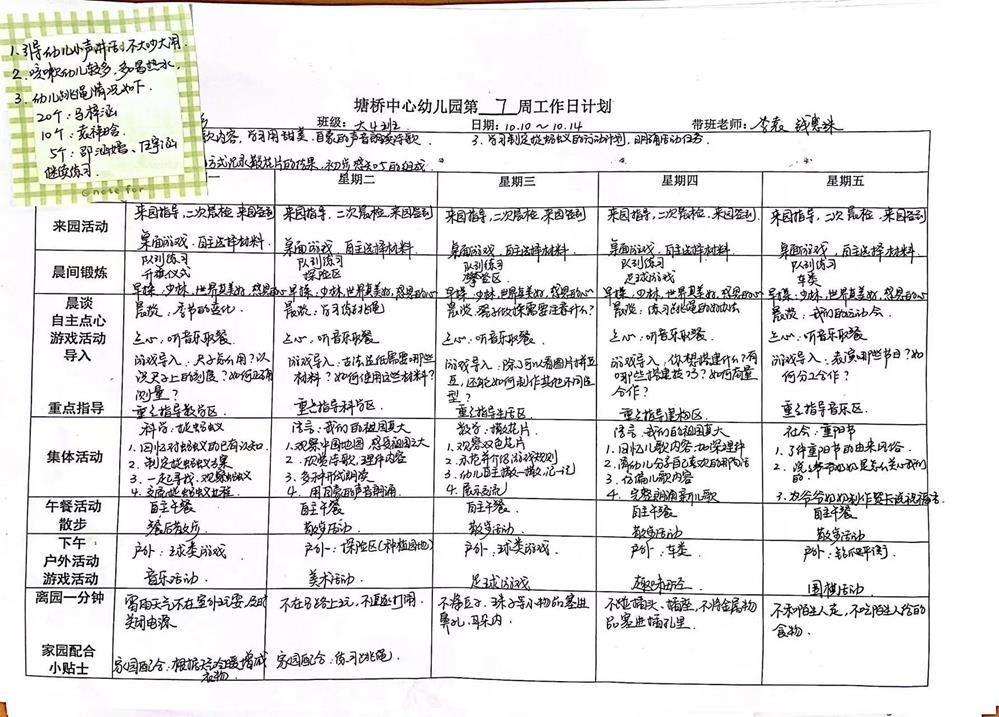 1、引导幼儿小声讲话，不大吵大闹．
2、咳嗽幼儿较多，多喝热水．
3、幼儿跳绳情况如下．
20个：马梓涵
10个：
5个：
继续练习．
note for
塘桥中心幼儿园第 7 周工作日计划
班级： 大4班 日期：10.10～10.14 带班老师：
内容，学习用甜美、自豪的声音朗诵诗歌 3、学习制定 的行动计划，明确活动任务．
方式记录撒花片的结果，初步感知5的组成
一 星期二 星期三 星期四 星期五
来园活动
来园指导，二次晨检，来园签到 来园指导，二次晨检，来园签到 来园指导，二次晨检，来园签到 来园指导，二次晨检，来园签到 来园指导，二次晨检，来园签到
桌面游戏，自主选择材料． 桌面游戏，自主选择材料． 桌面游戏，自主选择材料． 桌面游戏，自主选择材料 桌面游戏，自主选择材料．
晨间锻炼
队列练习 队列练习 队列练习 队列练习 队列练习
升旗仪式 探险区 攀登区． 足球游戏 车类
早操：少林，世界真美好，感恩的心 早操：少林，世界真美好，感恩的心 早操：少林，世界真美好，感恩的心 早操：少林，世界真美好，感恩的心 早操：少林，世界真美好，感恩的心
晨谈
自主点心
游戏活动
导入
重点指导
晨谈：季节的变化． 晨谈：学习练跳绳 晨谈： 需要注意什么？ 晨谈：练习跳绳的方法 晨谈：我们的运动会．
点心：听音乐取餐 点心，听音乐取餐 点心，听音乐取餐． 点心，听音乐取餐． 点心，听音乐取餐．
游戏导入：尺子怎么用？认识尺子上的刻度？如何正确测量？
游戏导入： 需要哪些材料？如何使用这些材料？
游戏导入：除了可以看图片拼 ，还能如何制作其他不同造型？
游戏导入：你想搭建什么？有哪些搭建技巧？如何商量合作？
游戏导入：表演哪些节目？如何分工合作？
重点指导数学区． 重点指导科学区． 重点指导生活区 重点指导建构区． 重点指导音乐区．
集体活动
科学：
1、回忆对蚂蚁的已有认知
2、制定 方案
3、一起寻找、观察蚂蚁
4、交流
语言：我们的祖国真大
1、观察中国地图，感受祖国之大
2、欣赏诗歌，理解内容
3、多种形式朗诵
4、用自豪的声音朗诵．
数学：撒花片
1、观察双色花片
2、 介绍游戏规则
3、幼儿自主撒一撒、记一记
4、展示交流
语言：我们的祖国真大
1、回忆儿歌内容，加深理解
2、请幼儿分享自己喜欢的那句话
3、仿编儿歌内容
4、完整朗诵新儿歌
社会：重阳节
1、了解重阳节的由来风俗．
2、说一说爷爷奶奶是怎么关心我们的．
3、为爷爷奶奶制作贺卡送祝福语．
午餐活动
散步
自主午餐 自主午餐 自主午餐． 自主午餐 自主午餐
餐后散步． 散步活动． 散步活动 散步活动 散步活动
下午
户外活动
游戏活动
户外：球类游戏 户外：探险区（种植园地） 户外：球类游戏． 户外：车类 户外： 平衡
音乐活动． 美术活动． 足球游戏 围棋活动
离园一分钟
雷雨天气不在室外玩耍，及时关闭电源
不在马路上玩，不追逐打闹．
不将豆子、珠子等小物品塞进鼻孔、耳朵内．
不碰插头、插座，不将金属物品塞进插孔里．
不和陌生人走，不吃陌生人给的食物．
家园配合
小贴士
家园配合：根据天气冷暖增减衣物． 家园配合：练习跳绳．